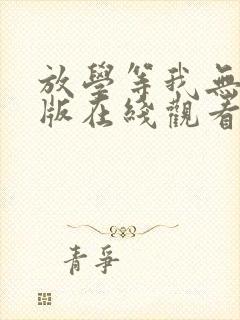 放學等我無
版在綫觀看
青爭